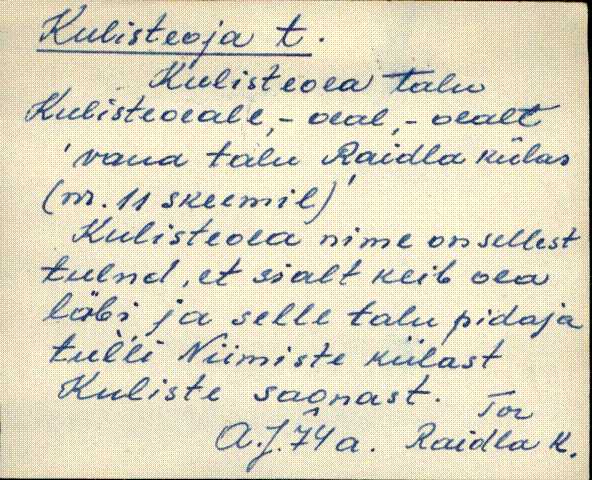 Kulisteoja t.
Kulisteoea talu
Kulisteoeale, - oeal, - oealt
'vana talu Raidla külas
(nr. 11 skeemil)'
Kulisteoea nime on sellest
tulnd, et sialt keib oea
läbi ja selle talu pidaja
tulli Niimiste külast
Kuliste saonast.
Tor
A.J. 74 a. Raidla k.